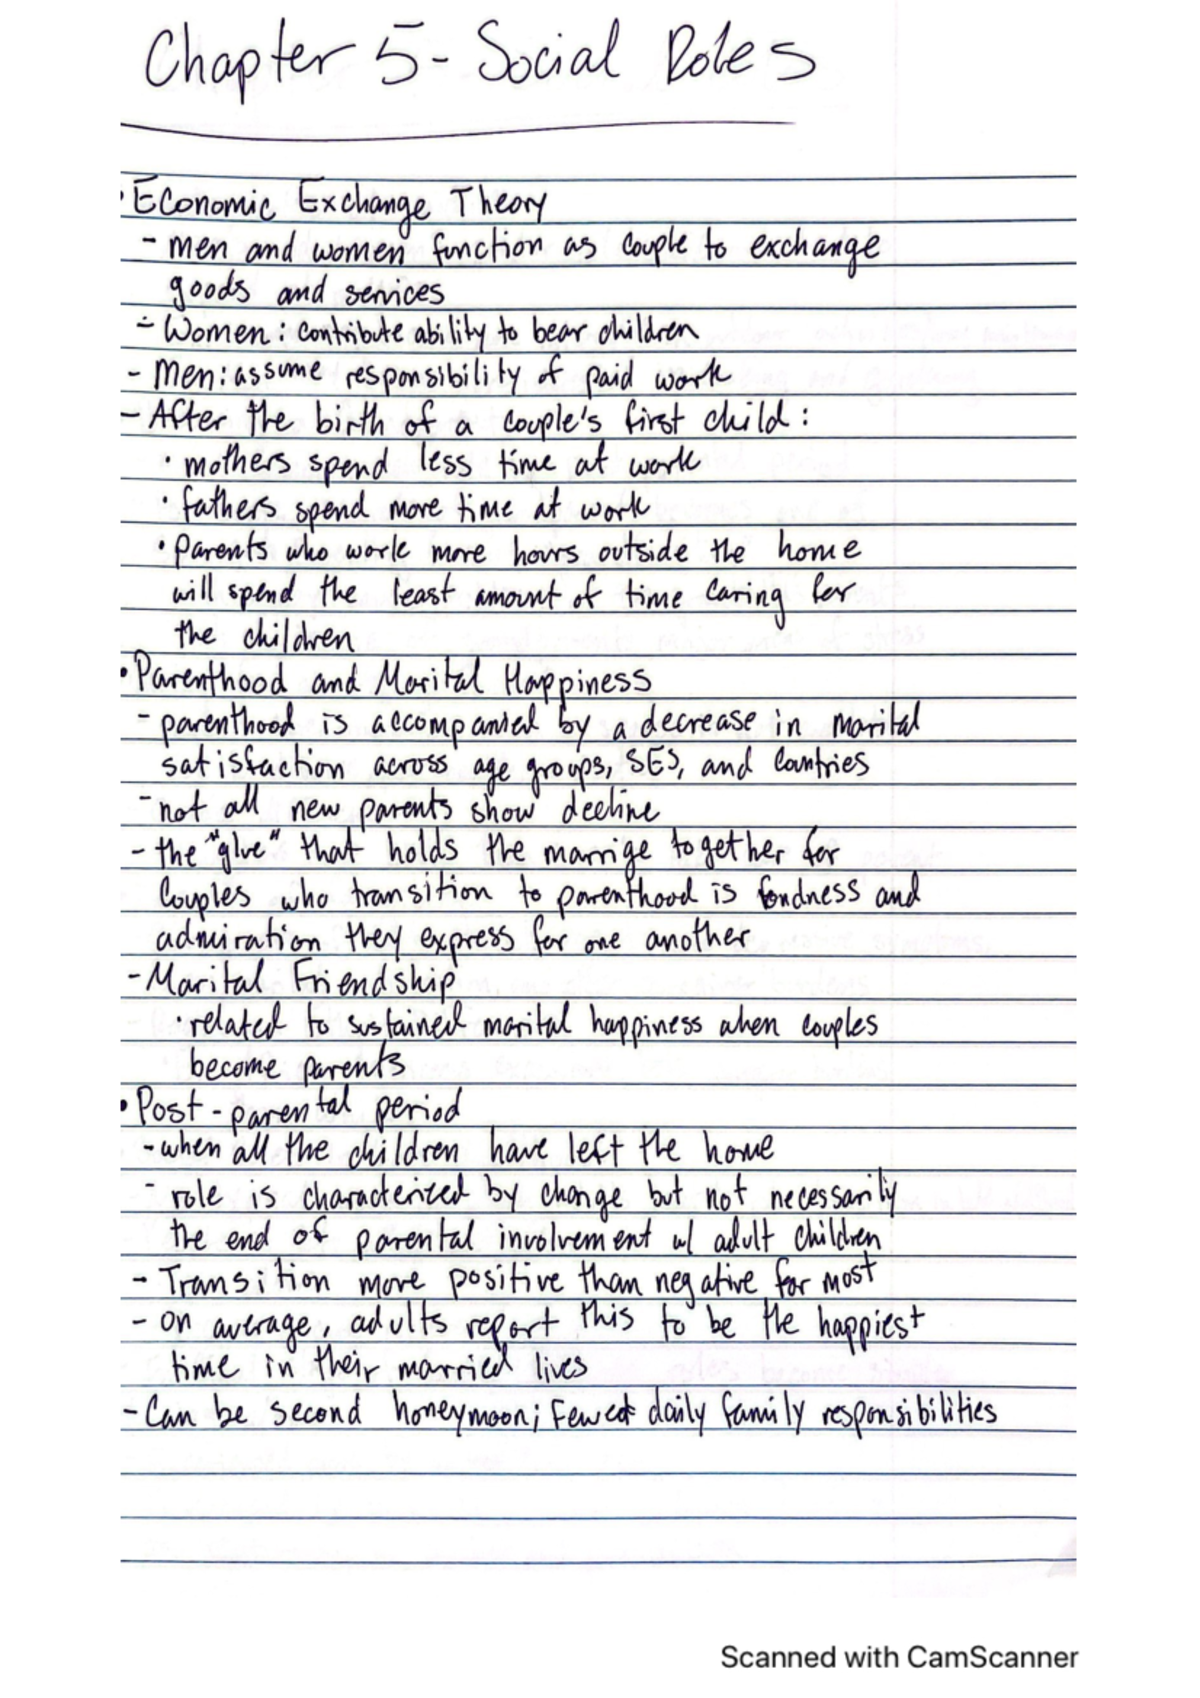 Chapter 5 - Social Roles
• Economic Exchange Theory
- men and women function as couple to exchange
goods and services
- Women: contribute ability to bear children
- Men: assume responsibility of paid work
- After the birth of a couple's first child:
• mothers spend less time at work
• fathers spend more time at work
• parents who work more hours outside the home
will spend the least amount of time caring for
the children
• Parenthood and Marital Happiness
- parenthood is accompanied by a decrease in marital
satisfaction across age groups, SES, and countries
- not all new parents show decline
- the "glue" that holds the marrige together for
couples who transition to parenthood is fondness and
admiration they express for one another
- Marital Friendship
• related to sustained marital happiness when couples
become parents
• Post-parental period
- when all the children have left the home
- role is characterized by change but not necessarily
the end of parental involvement w/ adult children
- Transition more positive than negative for most
- on average, adults report this to be the happiest
time in their married lives
- Can be second honeymoon; Fewest daily family responsibilities
Scanned with CamScanner